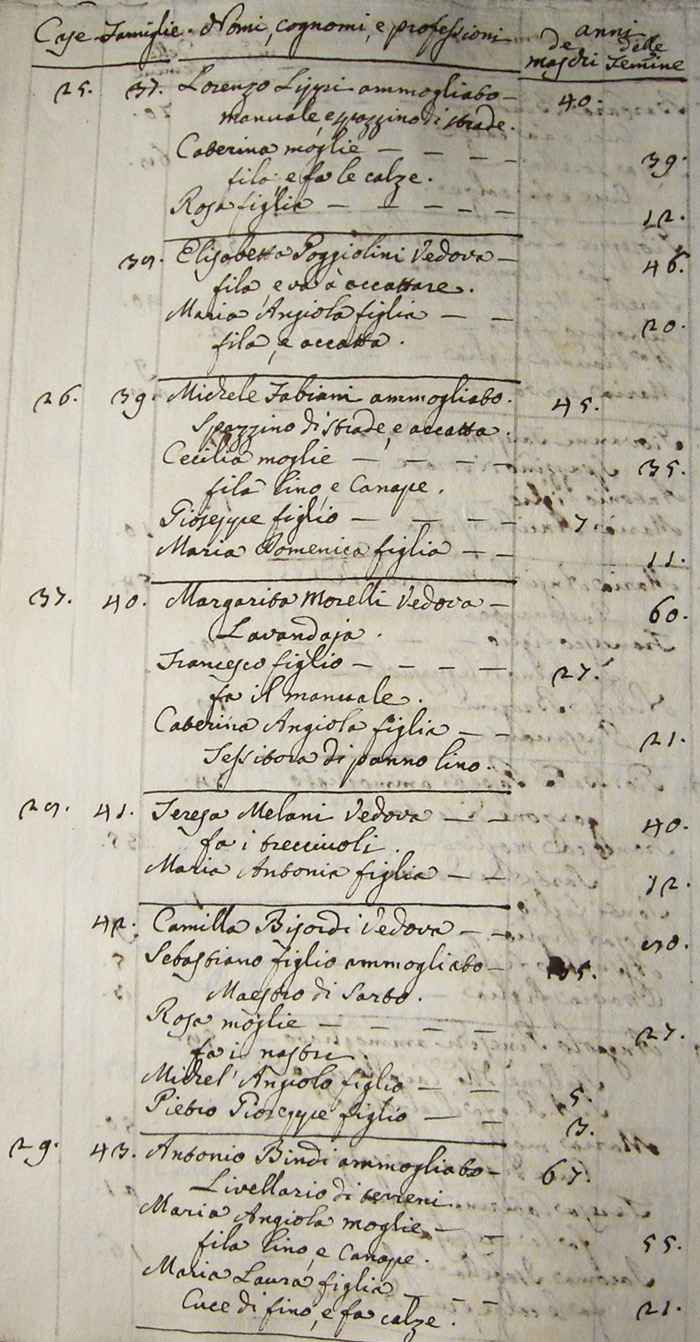 Case Famiglie. Nomi, cognomi, e professioni anni
de maschi delle Femine
25. 37. Lorenzo Lippi ammogliato — 40.
manuale, e spazzino di strade.
Caterina moglie — — — — 39.
fila e fa le calze.
Rosa figlia — — — — — 12.
Elisabetta Poggiolini Vedova — 46.
fila e và à accattare.
Maria Angiola figlia — — 20.
fila, e accatta.
26. 39. Michele Fabiani ammogliato. 45.
Spazzino di strade, e accatta.
Cecilia moglie — — — — 35.
fila lino, e Canape.
Gioseppe figlio — — — — 7
Maria Domenica figlia — — 11.
40. Margarita Morelli Vedova — 60.
Lavandaja.
Francesco figlio — — — — 27.
fa il manuale.
Caterina Angiola figlia — — 21.
Tessitora di panno lino.
41. Teresa Melani Vedova — — 40.
fa i trecciuoli.
Maria Antonia figlia — — 12.
42. Camilla Bisordi Vedova — —
Sebastiano figlio ammogliato —
Maestro di Sarto.
Rosa moglie — — — — 27.
fa i nastri.
Michel' Angiolo figlio — — 5.
Pietro Gioseppe figlio — — 3.
29. 43. Antonio Bindi ammogliato — 67.
Livellario di terreni
Maria Angiola moglie — — 55.
fila lino, e Canape.
Maria Laura figlia — — 21.
Cuce di fino, e fa calze.